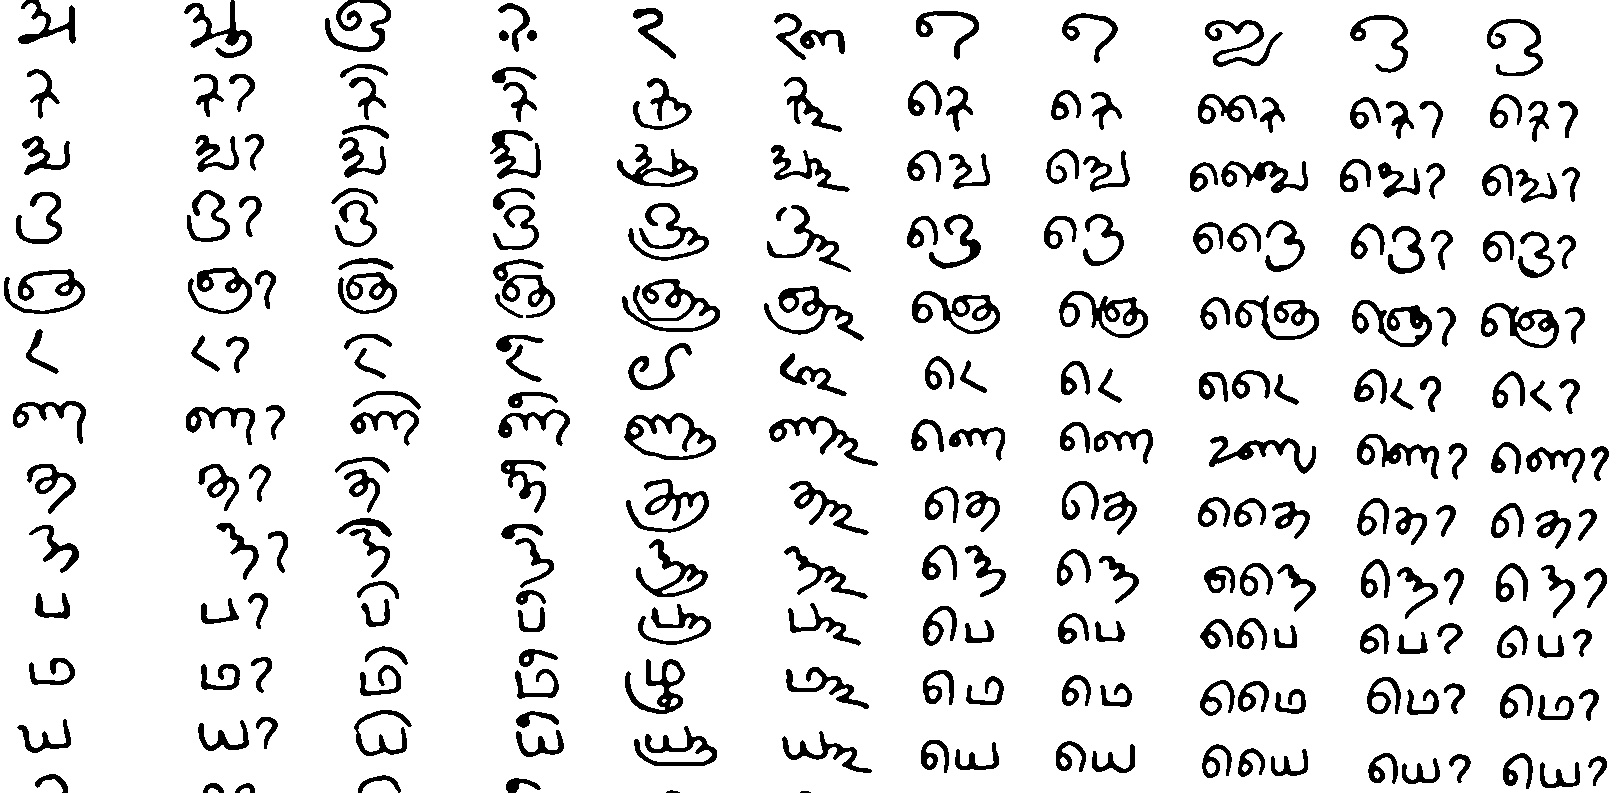 அ ஆ இ ஈ உ ஊ எ ஏ ஐ ஒ ஓ
க கா கி கீ கு கூ கெ கே கை கொ கோ
ங ஙா ஙி ஙீ ஙு ஙூ ஙெ ஙே ஙை ஙொ ஙோ
ச சா சி சீ சு சூ செ சே சை சொ சோ
ஞ ஞா ஞி ஞீ ஞு ஞூ ஞெ ஞே ஞை ஞொ ஞோ
ட டா டி டீ டு டூ டெ டே டை டொ டோ
ண ணா ணி ணீ ணு ணூ ணெ ணே ணை ணொ ணோ
த தா தி தீ து தூ தெ தே தை தொ தோ
ந நா நி நீ நு நூ நெ நே நை நொ நோ
ப பா பி பீ பு பூ பெ பே பை பொ போ
ம மா மி மீ மு மூ மெ மே மை மொ மோ
ய யா யி யீ யு யூ யெ யே யை யொ யோ